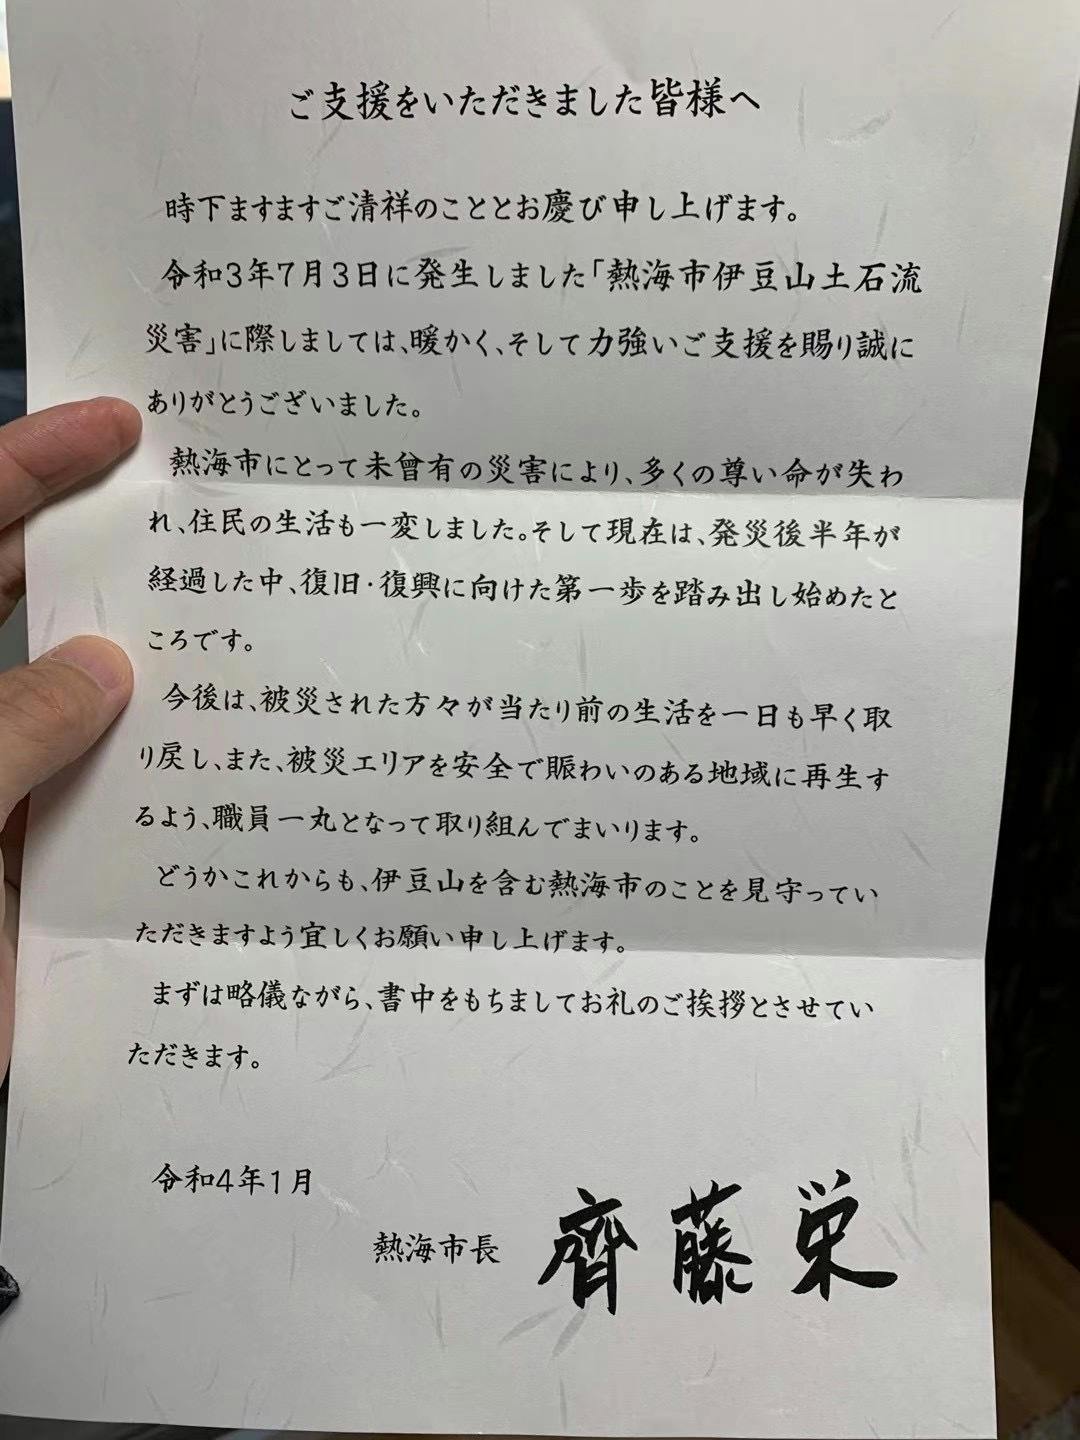 ご支援をいただきました皆様へ
時下ますますご清祥のこととお慶び申し上げます。
令和3年7月3日に発生しました「熱海市伊豆山土石流
災害」に際しましては、暖かく、そして力強いご支援を賜り誠に
ありがとうございました。
熱海市にとって未曾有の災害により、多くの尊い命が失わ
れ、住民の生活も一変しました。そして現在は、発災後半年が
経過した中、復旧・復興に向けた第一歩を踏み出し始めたと
ころです。
今後は、被災された方々が当たり前の生活を一日も早く取
り戻し、また、被災エリアを安全で賑わいのある地域に再生す
るよう、職員一丸となって取り組んでまいります。
どうかこれからも、伊豆山を含む熱海市のことを見守ってい
ただきますよう宜しくお願い申し上げます。
まずは略儀ながら、書中をもちましてお礼のご挨拶とさせてい
ただきます。
令和4年1月
熱海市長 齊藤栄